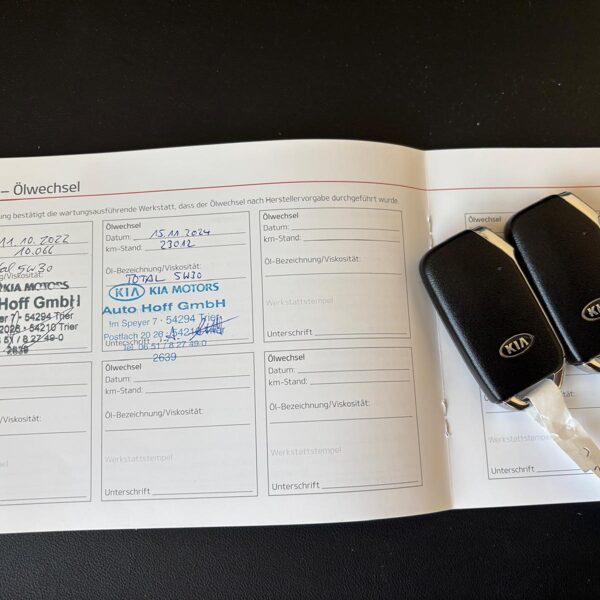 – Ölwechsel
ung bestätigt die wartungsausführende Werkstatt, dass der Ölwechsel nach Herstellervorgabe durchgeführt wurde.
11.10.2022
10.066
5W30
g/Viskosität:
KIA MOTORS
Hoff GmbH
54294 Trier
54210 Trier
51 / 8 27 49-0
2639
Ölwechsel
Datum: 15.11.2024
km-Stand: 23012
Öl-Bezeichnung/Viskosität:
TOTAL 5W30
KIA KIA MOTORS
Auto Hoff GmbH
Im Speyer 7 · 54294 Trier
Postfach 20 28 · 54210 Trier
Unterschrift i.A.
Tel. 06 51 / 8 27 49-0
2639
Ölwechsel
Datum:
km-Stand:
Öl-Bezeichnung/Viskosität:
Werkstattstempel
Unterschrift
g/Viskosität:
stempel
Ölwechsel
Datum:
km-Stand:
Öl-Bezeichnung/Viskosität:
Werkstattstempel
Unterschrift
Ölwechsel
Datum:
km-Stand:
Öl-Bezeichnung/Viskosität:
Werkstattstempel
Unterschrift
Unterschrift
KIA
KIA